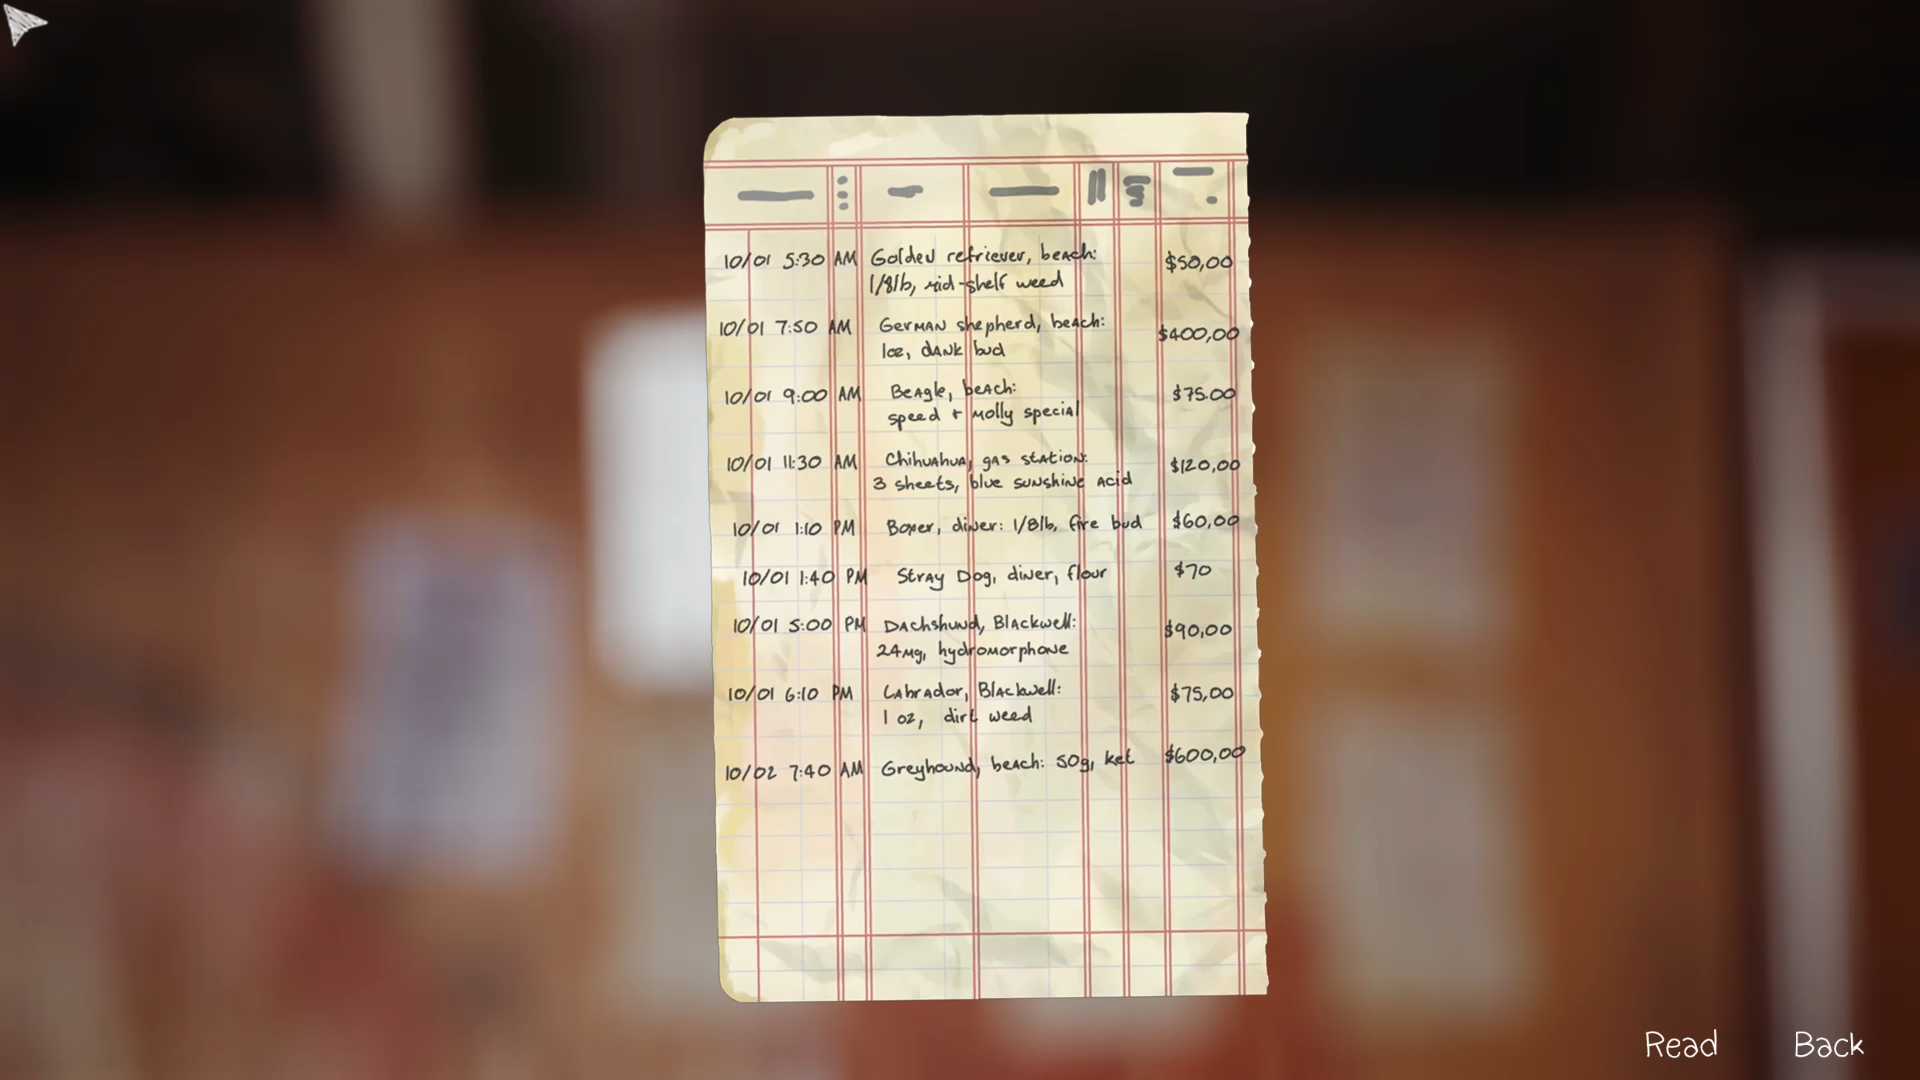 10/01 5:30 AM Golden retriever, beach: $50,00
1/8lb, mid-shelf weed
10/01 7:50 AM German shepherd, beach: $400,00
1oz, dank bud
10/01 9:00 AM Beagle, beach: $75.00
speed + Molly special
10/01 11:30 AM Chihuahua, gas station: $120,00
3 sheets, blue sunshine acid
10/01 1:10 PM Boxer, diner: 1/8lb, fire bud $60,00
10/01 1:40 PM Stray Dog, diner, flour $70
10/01 5:00 PM Dachshund, Blackwell: $90,00
24mg, hydromorphone
10/01 6:10 PM Labrador, Blackwell: $75,00
1 oz, dirt weed
10/02 7:40 AM Greyhound, beach: 50g, ket $600,00
Read Back